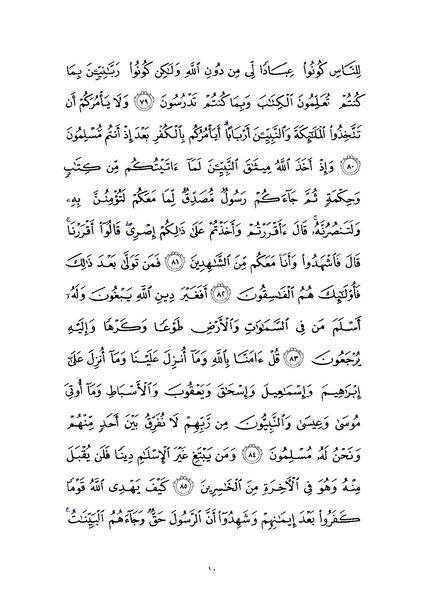 لِلنَّاسِ كُونُوا۟ عِبَادًا لِّى مِن دُونِ ٱللَّهِ وَلَـٰكِن كُونُوا۟ رَبَّـٰنِيِّـۧنَ بِمَا
كُنتُمْ تُعَلِّمُونَ ٱلْكِتَـٰبَ وَبِمَا كُنتُمْ تَدْرُسُونَ ﴿٧٩﴾ وَلَا يَأْمُرَكُمْ أَن
تَتَّخِذُوا۟ ٱلْمَلَـٰٓئِكَةَ وَٱلنَّبِيِّـۧنَ أَرْبَابًا ۗ أَيَأْمُرُكُم بِٱلْكُفْرِ بَعْدَ إِذْ أَنتُم مُّسْلِمُونَ
﴿٨٠﴾ وَإِذْ أَخَذَ ٱللَّهُ مِيثَـٰقَ ٱلنَّبِيِّـۧنَ لَمَآ ءَاتَيْتُكُم مِّن كِتَـٰبٍ
وَحِكْمَةٍ ثُمَّ جَآءَكُمْ رَسُولٌ مُّصَدِّقٌ لِّمَا مَعَكُمْ لَتُؤْمِنُنَّ بِهِۦ
وَلَتَنصُرُنَّهُۥ ۚ قَالَ ءَأَقْرَرْتُمْ وَأَخَذْتُمْ عَلَىٰ ذَٰلِكُمْ إِصْرِى ۖ قَالُوٓا۟ أَقْرَرْنَا ۚ
قَالَ فَٱشْهَدُوا۟ وَأَنَا۠ مَعَكُم مِّنَ ٱلشَّـٰهِدِينَ ﴿٨١﴾ فَمَن تَوَلَّىٰ بَعْدَ ذَٰلِكَ
فَأُو۟لَـٰٓئِكَ هُمُ ٱلْفَـٰسِقُونَ ﴿٨٢﴾ أَفَغَيْرَ دِينِ ٱللَّهِ يَبْغُونَ وَلَهُۥٓ
أَسْلَمَ مَن فِى ٱلسَّمَـٰوَٰتِ وَٱلْأَرْضِ طَوْعًا وَكَرْهًا وَإِلَيْهِ
يُرْجَعُونَ ﴿٨٣﴾ قُلْ ءَامَنَّا بِٱللَّهِ وَمَآ أُنزِلَ عَلَيْنَا وَمَآ أُنزِلَ عَلَىٰٓ
إِبْرَٰهِيمَ وَإِسْمَـٰعِيلَ وَإِسْحَـٰقَ وَيَعْقُوبَ وَٱلْأَسْبَاطِ وَمَآ أُوتِىَ
مُوسَىٰ وَعِيسَىٰ وَٱلنَّبِيُّونَ مِن رَّبِّهِمْ لَا نُفَرِّقُ بَيْنَ أَحَدٍ مِّنْهُمْ
وَنَحْنُ لَهُۥ مُسْلِمُونَ ﴿٨٤﴾ وَمَن يَبْتَغِ غَيْرَ ٱلْإِسْلَـٰمِ دِينًا فَلَن يُقْبَلَ
مِنْهُ وَهُوَ فِى ٱلْـَٔاخِرَةِ مِنَ ٱلْخَـٰسِرِينَ ﴿٨٥﴾ كَيْفَ يَهْدِى ٱللَّهُ قَوْمًا
كَفَرُوا۟ بَعْدَ إِيمَـٰنِهِمْ وَشَهِدُوٓا۟ أَنَّ ٱلرَّسُولَ حَقٌّ وَجَآءَهُمُ ٱلْبَيِّنَـٰتُ ۚ
١٠